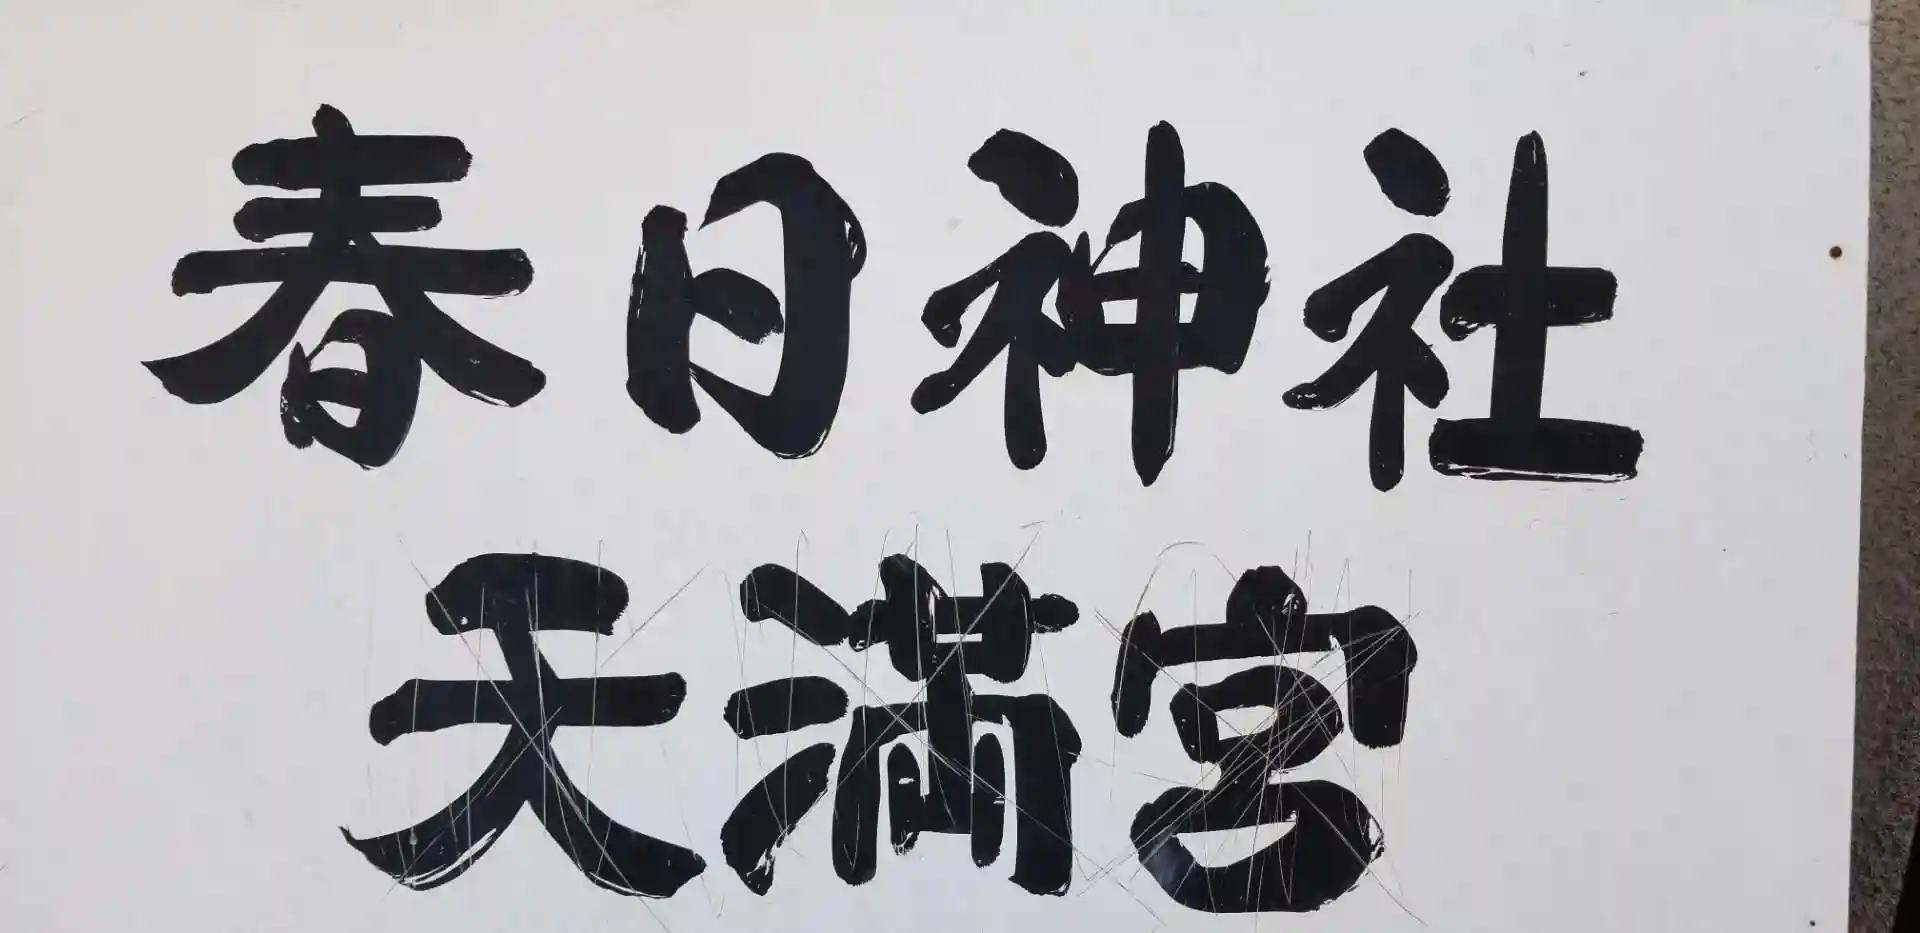 春日神社
天満宮